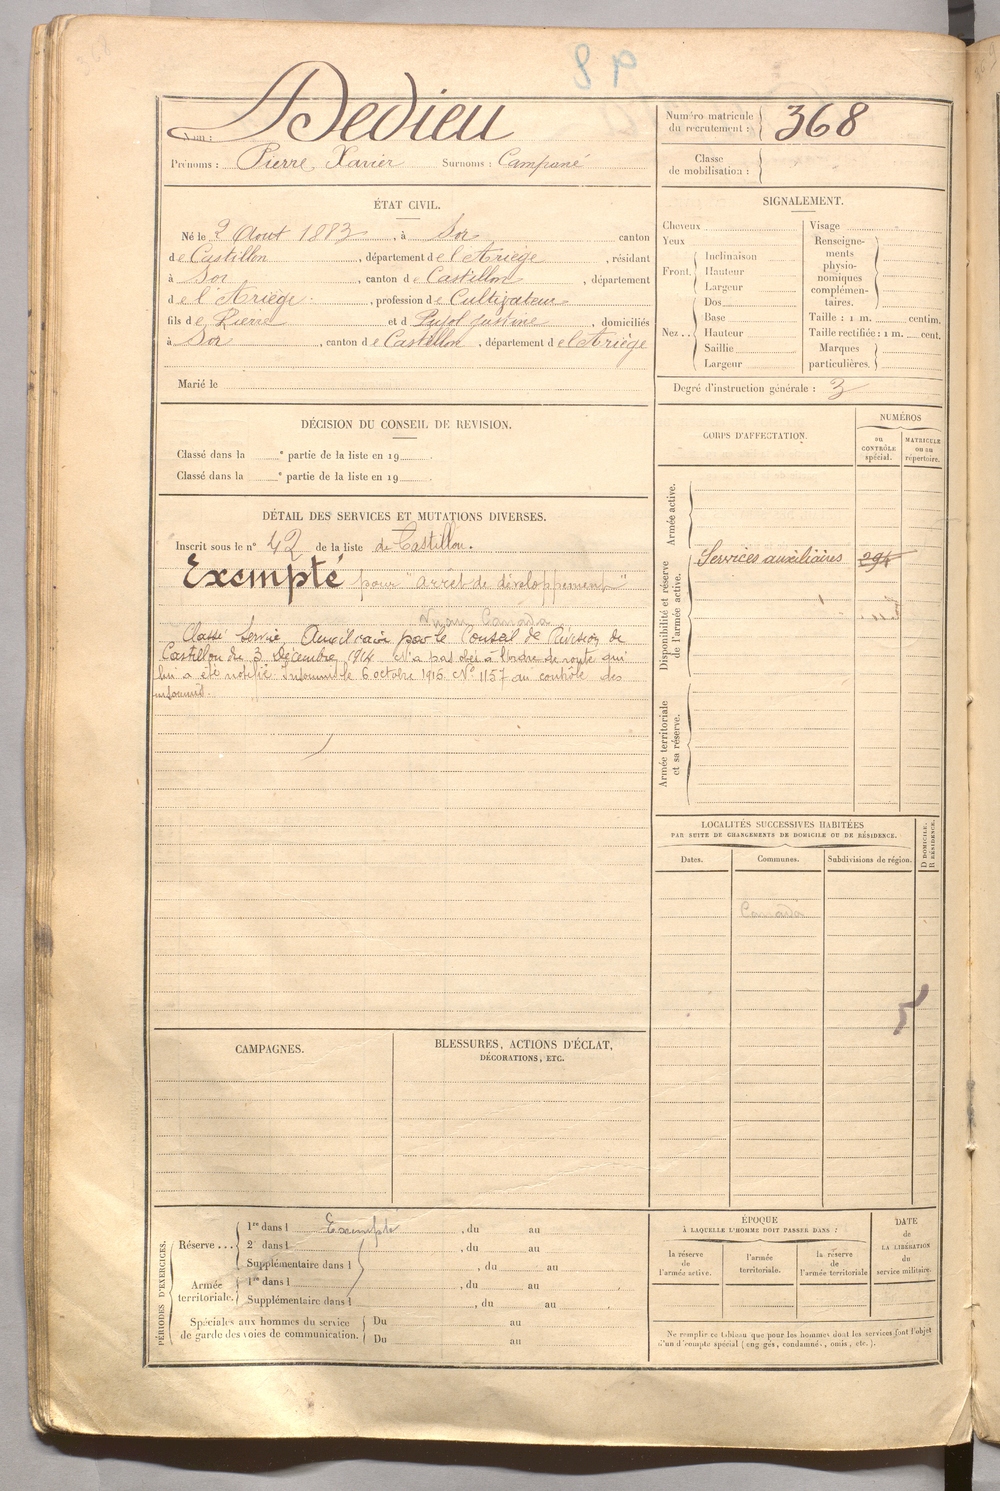 Nom : Dedieu
Prénoms : Pierre, Xavier Surnoms : Campané
Numéro matricule
du recrutement : 368
Classe
de mobilisation :
ÉTAT CIVIL.
Né le 2 Aout 1883, à Sor canton
de Castillon, département de l'Ariège, résidant
à Sor, canton de Castillon, département
de l'Ariège, profession de Cultivateur
fils de Pierre et d Pujol Justine, domiciliés
à Sor, canton de Castillon, département de l'Ariège
Marié le
SIGNALEMENT.
Cheveux
Yeux
Front.
Inclinaison
Hauteur
Largeur
Nez..
Dos
Base
Hauteur
Saillie
Largeur
Visage
Renseigne-
ments
physio-
nomiques
complémen-
taires.
Taille : 1 m. centim.
Taille rectifiée : 1 m. cent.
Marques
particulières.
Degré d'instruction générale : 3
DÉCISION DU CONSEIL DE REVISION.
Classé dans la e partie de la liste en 19 .
Classé dans la e partie de la liste en 19 .
DÉTAIL DES SERVICES ET MUTATIONS DIVERSES.
Inscrit sous le n° 42 de la liste de Castillon.
Exempté pour "arrêt de développement"
Canada
Classé Service Auxiliaire par le Conseil de Révision de
Castillon du 3 Décembre 1914 N'a pas obéi à l'ordre de route qui
lui a été notifié. Insoumis le 6 octobre 1916. N° 1157 du contrôle des
insoumis.
CORPS D'AFFECTATION.
NUMÉROS
DU
CONTRÔLE
spécial.
MATRICULE
OU AU
répertoire.
Armée active.
Disponibilité et réserve
de l'armée active.
Services auxiliaires 294
Armée territoriale
et sa réserve.
LOCALITÉS SUCCESSIVES HABITÉES
PAR SUITE DE CHANGEMENTS DE DOMICILE OU DE RÉSIDENCE.
Dates. Communes. Subdivisions de région.
D DOMICILE.
R RÉSIDENCE.
Canada
CAMPAGNES.
BLESSURES, ACTIONS D'ÉCLAT,
DÉCORATIONS, ETC.
PÉRIODES D'EXERCICES.
Réserve...
1re dans l Exempté, du au
2e dans l, du au
Supplémentaire dans l, du au
Armée
territoriale.
1re dans l, du au
Supplémentaire dans l, du au
Spéciales aux hommes du service
de garde des voies de communication.
Du au
Du au
ÉPOQUE
À LAQUELLE L'HOMME DOIT PASSER DANS :
la réserve
de
l'armée active.
l'armée
territoriale.
la réserve
de
l'armée territoriale
DATE
de
LA LIBÉRATION
du
service militaire.
Ne remplir ce tableau que pour les hommes dont les services font l'objet
d'un décompte spécial (engagés, condamnés, omis, etc.).